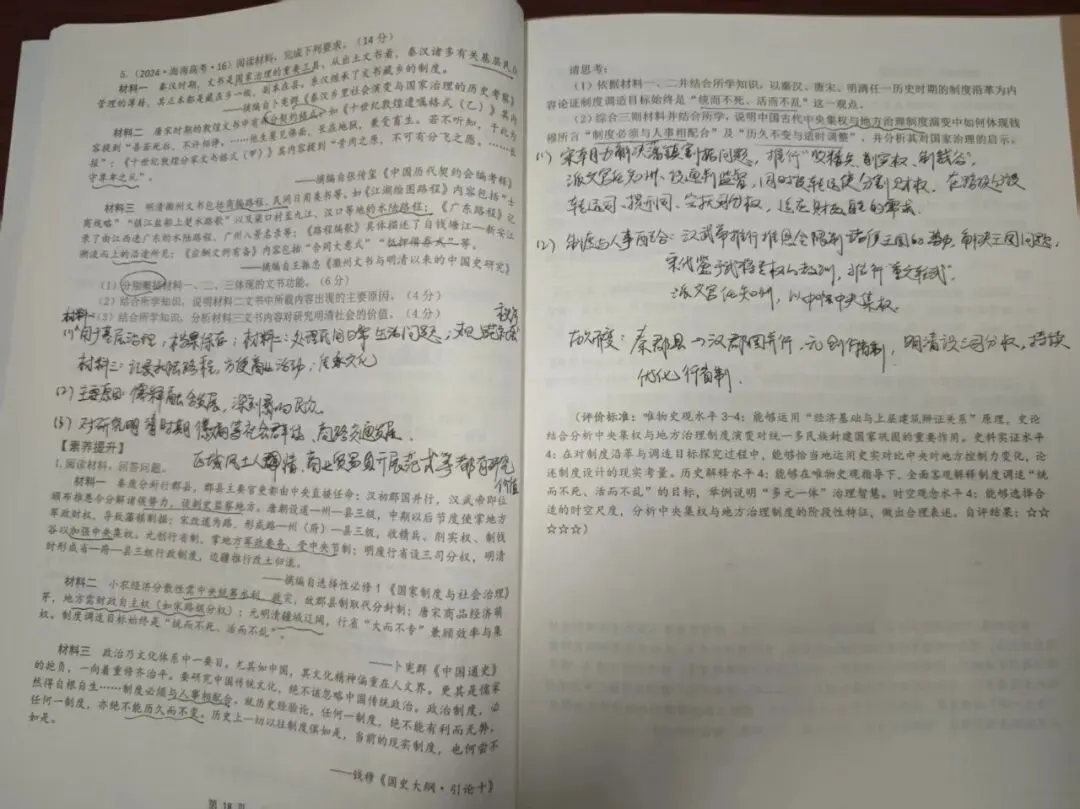 5.（2024·海南高考·16）阅读材料，完成下列要求。（14分）
材料一　秦汉时期，文书是国家治理的重要工具。从出土文书看，秦汉诸多有关基层民户
管理的簿籍，其正本都是藏在乡一级，副本在县。东汉继承了文书藏乡的制度。
——摘编自卜宪群《秦汉乡里社会演变与国家治理的历史考察》
材料二　唐宋时期的敦煌文书中有
契约格式，如《十世纪敦煌遗嘱格式（乙）》其内
容提到“吾若死后，不许相诤。……他生莫见佛面，长在地狱，兼受畜生。若不听知，千万为
报”；《十世纪敦煌分家文书格式（甲）》其内容提到“昔周之原，不可有分飞之愿。……长
守草本之义”。
——摘编自张传玺《中国历代契约会编考释》
材料三　明清徽州文书包括商编路程、民间日用类书等，如《江湖绘图路程》内容包括“士
商规略”“镇江益都上楚水路歌”以及梁口村至九江、汉口等地的水陆路程；《广东路程》记
录了由江西进广东的水陆路程、广州八景名录等；《路程觞歌》具体描述了自钱塘江—新安江
溯流而上的沿途所见；《应酬文约有备》内容包括“合同大意式”
等。
——摘编自王振忠《徽州文书与明清以来的中国史研究》
（1）分别概括材料一、二、三体现的文书功能。（6分）
（2）结合所学知识，说明材料二文书中所载内容出现的主要原因。（4分）
（3）结合所学知识，分析材料三文书内容对研究明清社会的价值。（4分）
(1) 材料一：用于基层治理，档案保存；材料二：处理民间日常生活问题；
材料三：记录水陆路程，方便商业活动；传承文化
(2) 主要原因：儒释融合发展，深刻影响民众
(3) 对研究明清时期 儒商等社会群体，商路交通发展
区域风土人情，商业贸易开展范式等都有研究
价值
【素养提升】
1.阅读材料，回答问题。
材料一　秦废分封行郡县，郡县主要官吏都由中央直接任命；汉初郡国并行，汉武帝即位
颁布推恩令分解诸侯势力，设刺史监察地方。唐朝设道—州—县三级，中期以后节度使掌地方
军政财权，导致藩镇割据；宋改道为路，形成路—州（府）—县三级，收精兵、削实权、制钱
谷以加强中央集权。元创行省制，掌地方军政要务，受中央节制；明废行省设三司分权，明清
时形成省—府—县三级行政制度，边疆推行改土归流。
——摘编自选择性必修1《国家制度与社会治理》
材料二　小农经济分散性需中央统筹水权、赈灾，故郡县制取代分封制；唐宋商品经济萌
芽，地方需财政自主权（如宋路级分权）；元明清疆域辽阔，行省“大而不专”兼顾效率与集
权。制度调适目标始终是“统而不死、活而不乱”。
——卜宪群《中国通史》
材料三　政治乃文化体系中一要目。尤其如中国，其文化精神偏重在人文界。更其是儒家
的抱负，一向着重修齐治平。要研究中国传统文化，绝不该忽略中国传统政治。政治制度，必
然得自根自生……制度必须与人事相配合。就历史经验论，任何一制度，绝不能有利而无弊。
任何一制度，亦绝不能历久而不变。历史上一切以往制度俱如是，当前的现实制度，也何尝不
如是。
——钱穆《国史大纲·引论十》
第 18 页
请思考：
（1）依据材料一、二并结合所学知识，以秦汉、唐宋、明清任一历史时期的制度沿革为内
容论证制度调适目标始终是“统而不死、活而不乱”这一观点。
（2）综合三则材料并结合所学，说明中国古代中央集权与地方治理制度演变中如何体现钱
穆所言“制度必须与人事相配合”及“历久不变与适时调整”，并分析其对国家治理的启示。
(1) 宋朝为解决藩镇割据问题，推行“收精兵、削实权、制钱谷”。
派文官任知州、设通判监督，同时设转运使分割财权。在路级分设
转运司、提刑司、安抚司分权，适应财政自主的需求。
(2) 制度与人事配合：汉武帝推行推恩令限制诸侯王国的势力，解决王国问题。
宋代鉴于武将专权的教训，推行“重文轻武”
派文官任知州，以加强中央集权。
秦郡县→汉郡国并行，元创行省制，明清设三司分权，持续
优化行省制．
（评价标准：唯物史观水平 3-4：能够运用“经济基础与上层建筑辩证关系”原理，史论
结合分析中央集权与地方治理制度演变对统一多民族封建国家巩固的重要作用。史料实证水平
4：在对制度沿革与调适目标探究过程中，能够恰当地运用史实对比中央对地方控制力变化，论
述制度设计的现实考量。历史解释水平 4：能够在唯物史观指导下，全面客观解释制度调适“统
而不死、活而不乱”的目标，举例说明“多元一体”治理智慧。时空观念水平 4：能够选择合
适的时空尺度，分析中央集权与地方治理制度的阶段性特征，做出合理表述。自评结果：☆☆
☆☆☆）